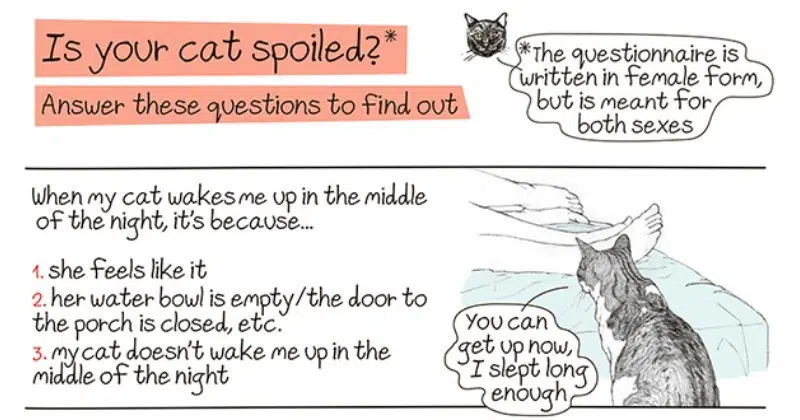 Is your cat spoiled?*
Answer these questions to find out
*The questionnaire is
written in female form,
but is meant for
both sexes
When my cat wakes me up in the middle
of the night, it's because...
1. she feels like it
2. her water bowl is empty/the door to
the porch is closed, etc.
3. my cat doesn't wake me up in the
middle of the night
You can
get up now,
I slept long
enough